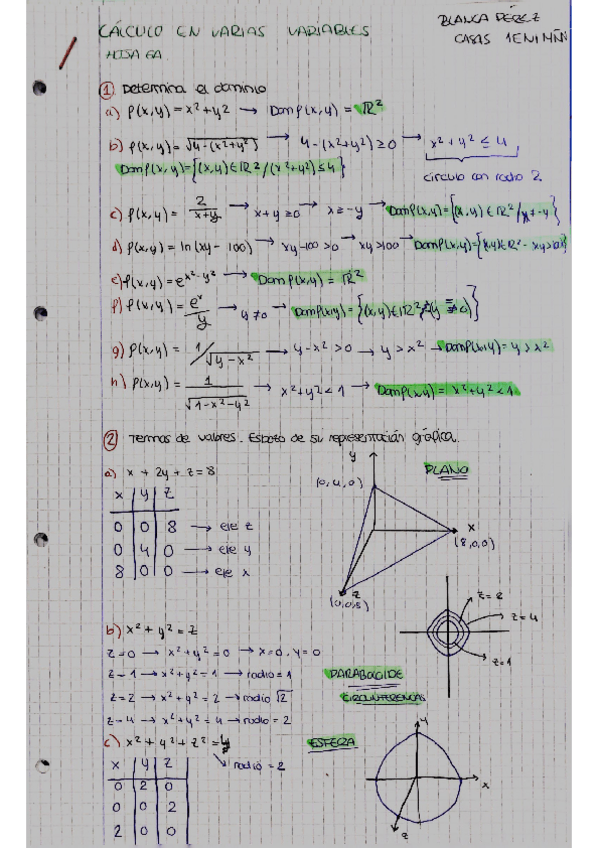 CÁLCULO EN VARIAS VARIABLES
BLANCA PÉREZ
CASAS 1ENIMÑN
HOJA 6A
① Determina el dominio
a) f(x,y) = x² + y² → Dom f(x,y) = ℝ²
b) f(x,y) = √4-(x²+y²) → 4-(x²+y²) ≥ 0 → x² + y² ≤ 4
Dom f(x,y) = {(x,y) ∈ ℝ² / (x²+y²) ≤ 4}
círculo con radio 2
c) f(x,y) = 2/(x+y) → x+y ≥ 0 → x ≥ -y → Dom f(x,y) = {(x,y) ∈ ℝ² /
d) f(x,y) = ln(xy - 100) → xy-100 > 0 → xy > 100 → Dom f(x,y) = {(x,y) ∈ ℝ² - xy>100}
e) f(x,y) = e^(x²-y²) → Dom f(x,y) = ℝ²
f) f(x,y) = eˣ/y → y ≠ 0 → Dom f(x,y) = {(x,y) ∈ ℝ²
g) f(x,y) = 1/√y-x² → y-x² > 0 → y > x² → Dom f(x,y) = y > x²
h) f(x,y) = 1/√1-x²-y² → x² + y² < 1 → Dom f(x,y) = x² + y² < 1
② Ternas de valores. Esbozo de su representación gráfica.
a) x + 2y + z = 8
PLANO
x y z
0 0 8 → eje z
0 4 0 → eje y
8 0 0 → eje x
y
(0,4,0)
x
(8,0,0)
z
(0,0,8)
b) x² + y² = z
z=0 → x² + y² = 0 → x=0, y=0
z=1 → x² + y² = 1 → radio = 1
z=2 → x² + y² = 2 → radio √2
z=4 → x² + y² = 4 → radio = 2
PARABOLOIDE
CIRCUNFERENCIAS
z=2
z=4
z=1
c) x² + y² + z² = 4
radio = 2
ESFERA
x y z
0 2 0
0 0 2
2 0 0
y
x
z